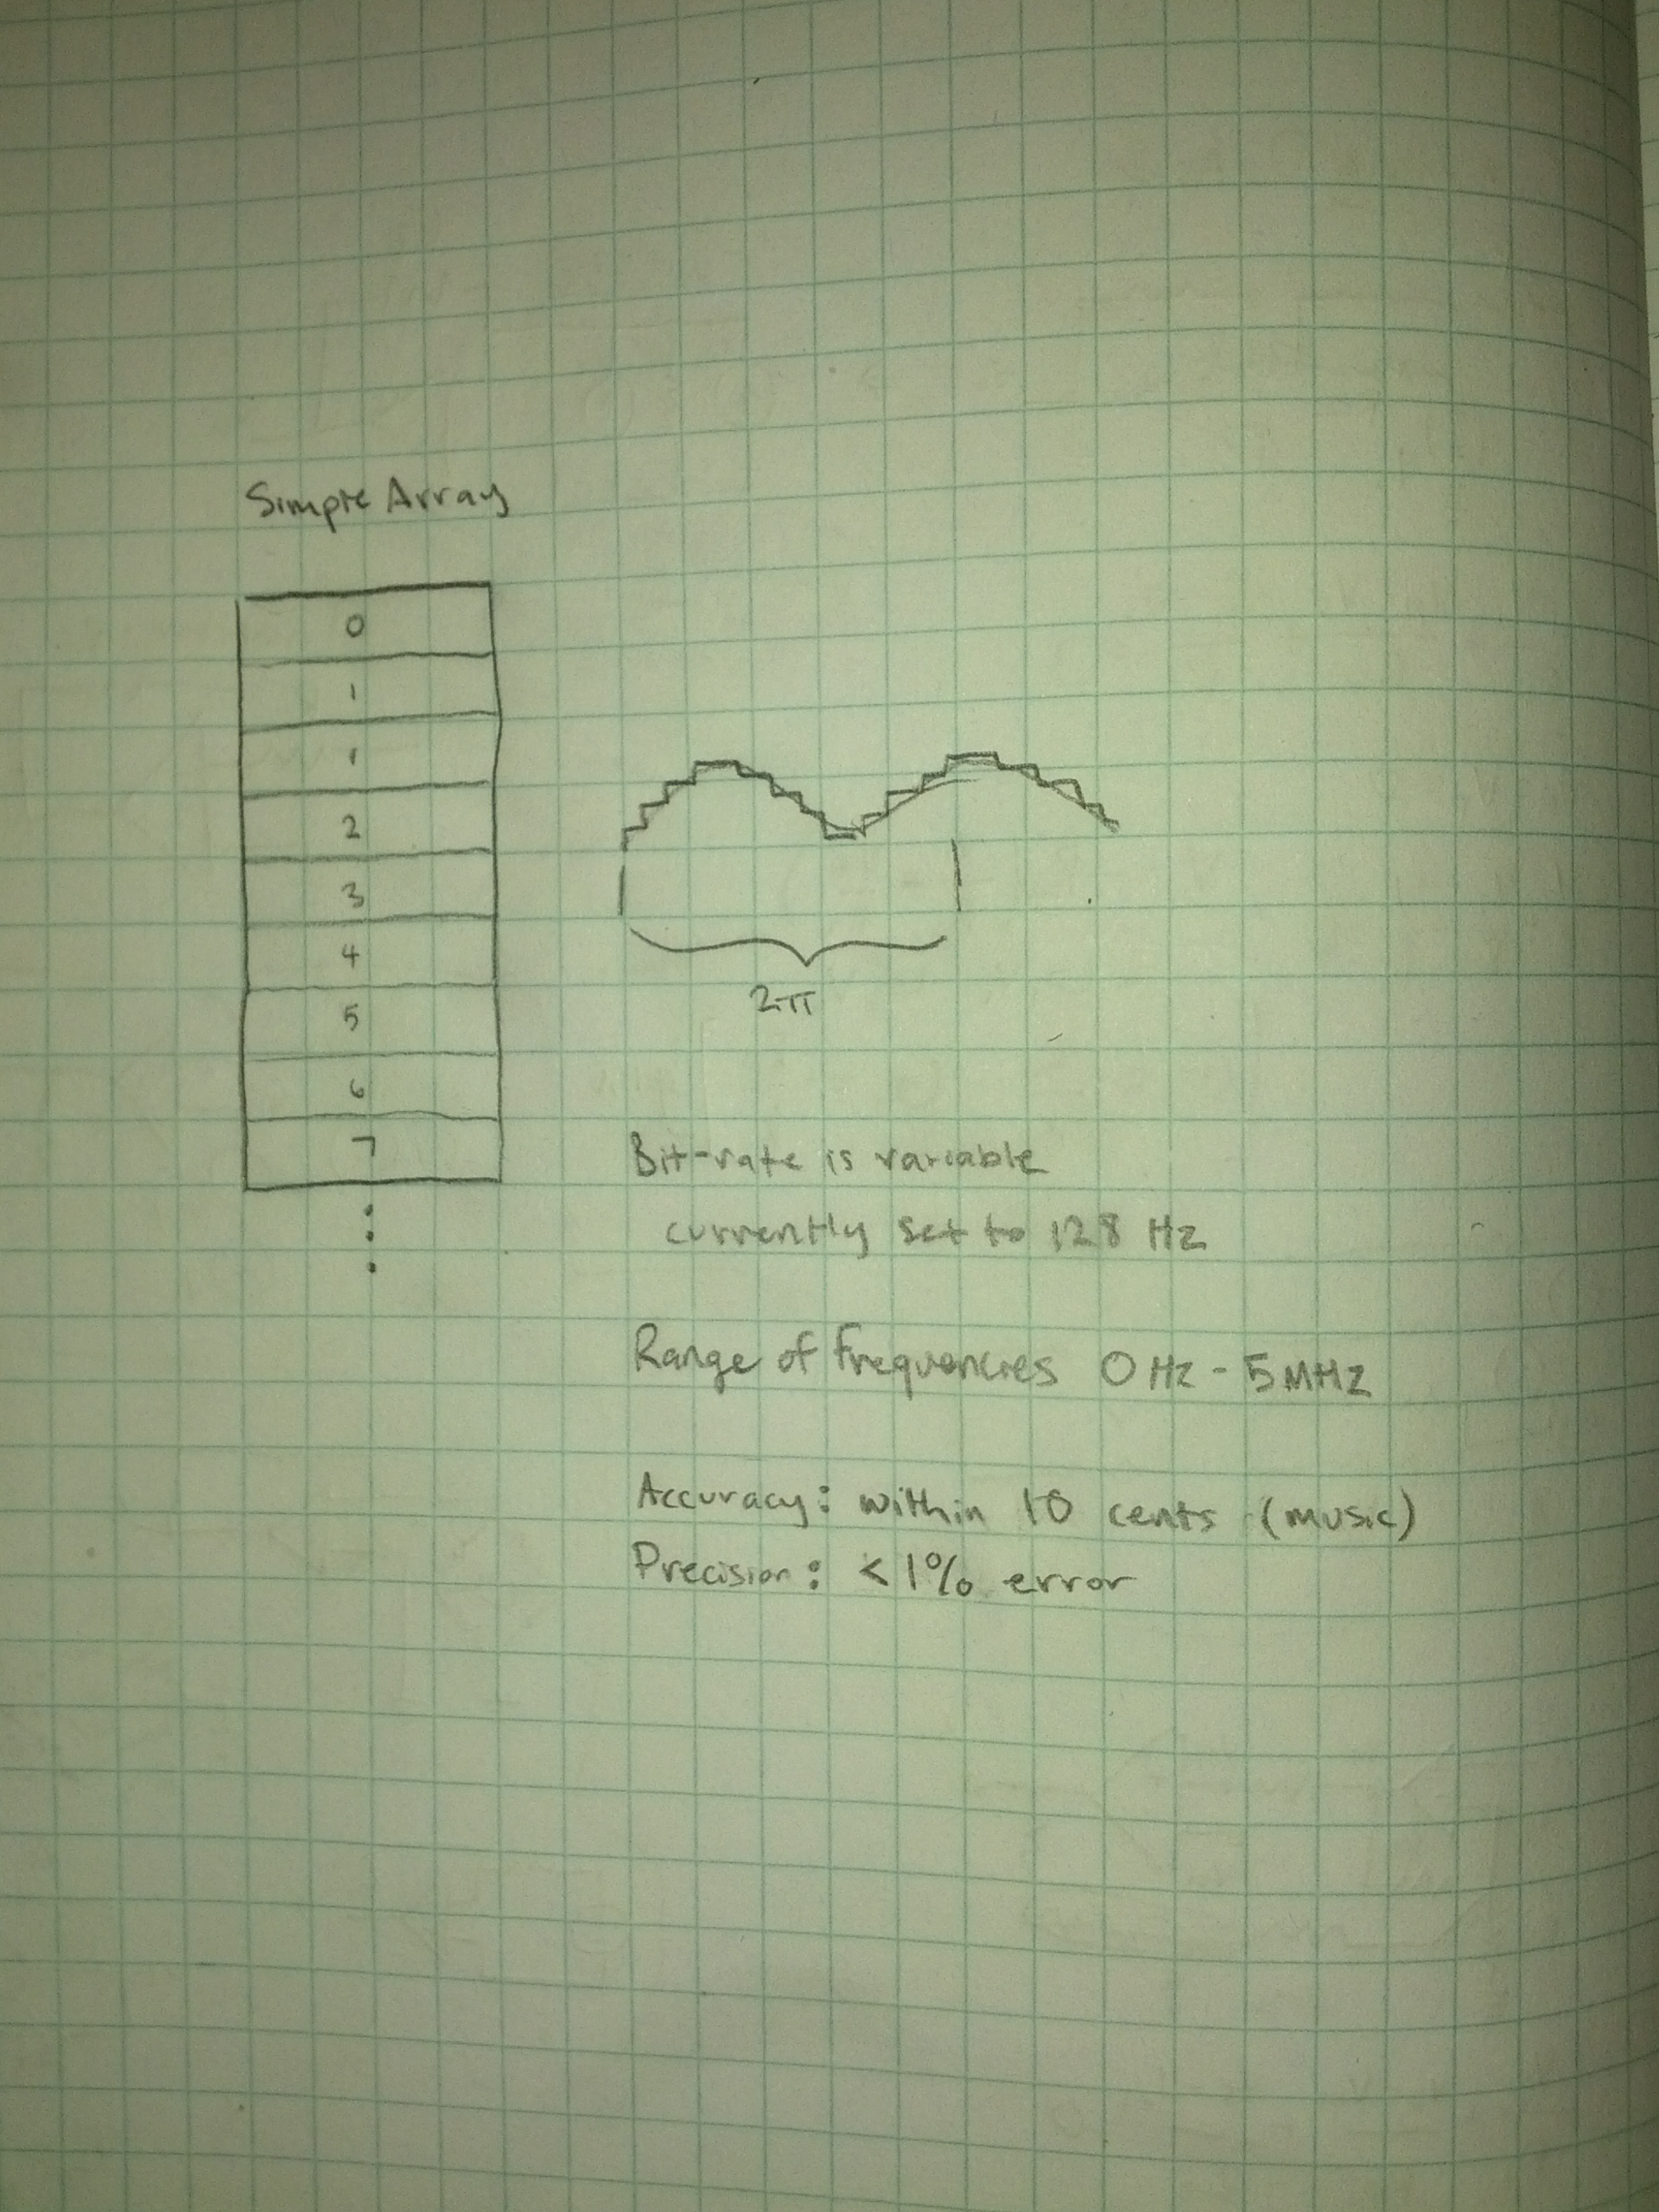 Simple Array
0
1
1
2
3
4
5
6
7
2π
Bit-rate is variable
currently set to 128 Hz
Range of frequencies 0 Hz - 5 MHz
Accuracy: within 10 cents (music)
Precision: < 1% error